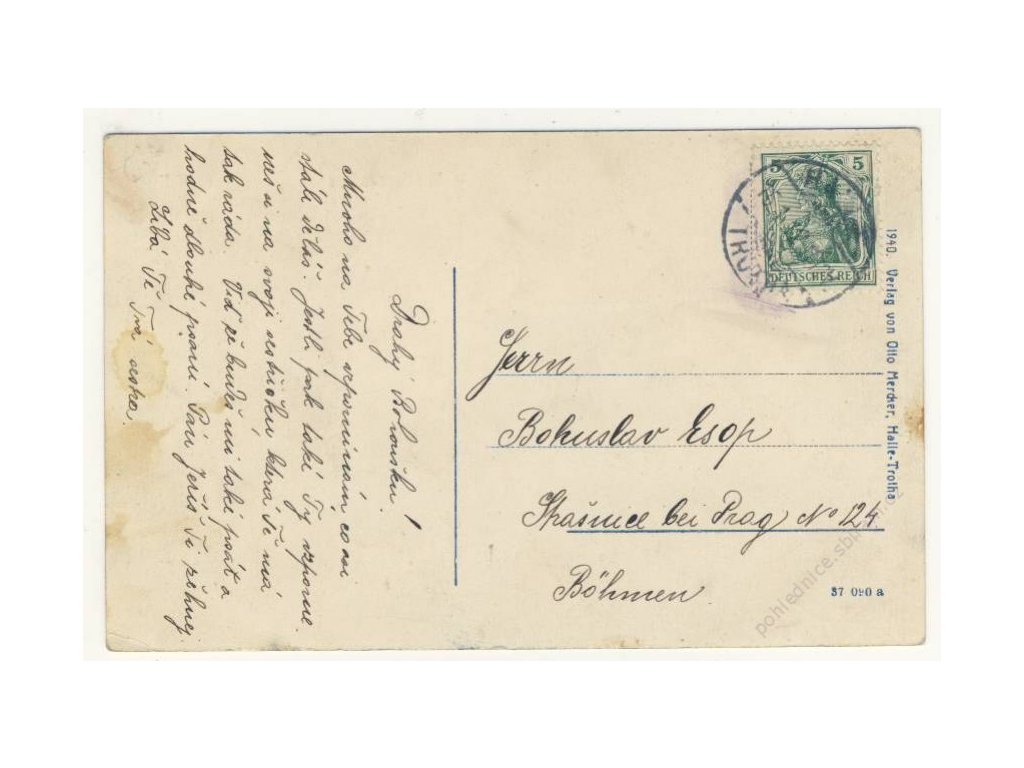 Drahý Bohoušku!
Mnoho na Tebe vzpomínám co asi
stále děláš. Jestli pak také Ty vzpome-
neš si na svoji sestřičku která Tě má
tak ráda. Viď že budeš mi také psát a
hodně dlouhé psaní. Pán Ježíš Ti žehnej
Líbá Tě Tvá sestra.
5 5
DEUTSCHES REICH
Herrn
Bohuslav Esop
Strašnice bei Prag No 124
Böhmen
1940. Verlag von Otto Mercker, Halle-Trotha
37 090 a